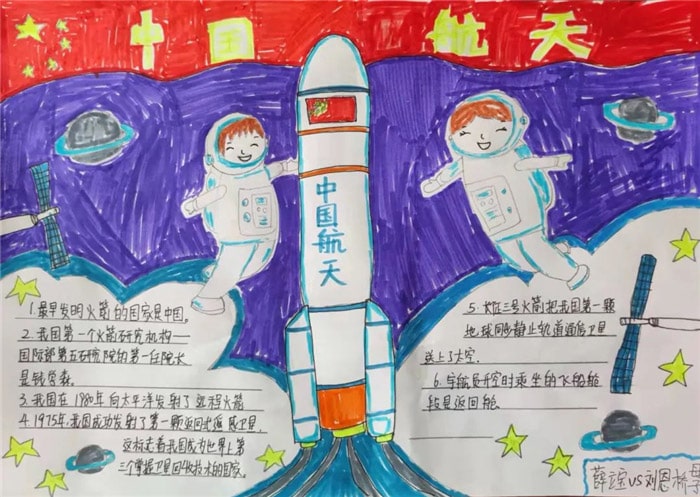 中国航天
中国航天
1.最早发明火箭的国家是中国。
2.我国第一个火箭研究机构——
国防部第五研究院的第一任院长
是钱学森。
3.我国在1980年向太平洋发射了远程火箭
4.1975年,我国成功发射了第一颗返回式遥感卫星,
这标志着我国成为世界上第
三个掌握卫星回收技术的国家。
5.长征三号火箭把我国第一颗
地球同步静止轨道通信卫星
送上了太空.
6.宇航员升空时乘坐的飞船舱
段是返回舱.
VS刘恩